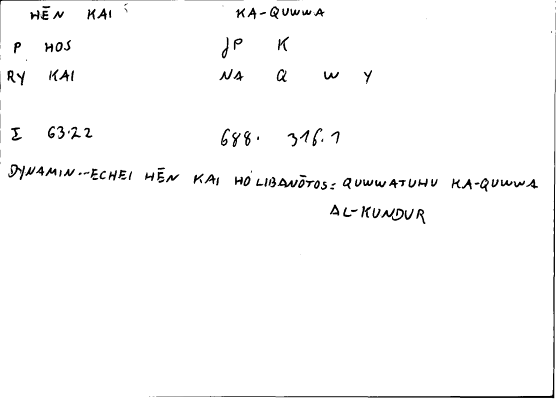 HĒN KAI KA-QUWWA
P HOS JP K
RY KAI NA Q W Y
Σ 63.22 688. 316.1
DYNAMIN--ECHEI HĒN KAI HO LIBANŌTOS= QUWWATUHU KA-QUWWA
AL-KUNDUR